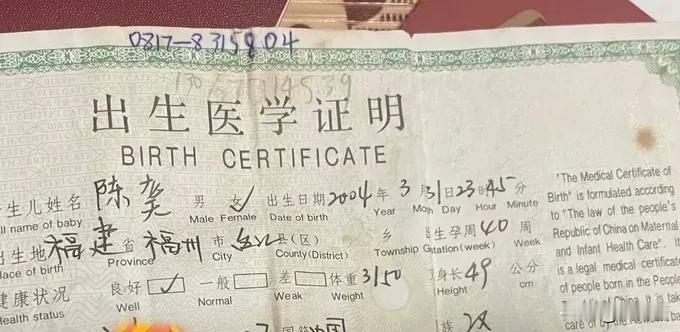 0817-8315904
出生医学证明
BIRTH CERTIFICATE
生儿姓名 陈 男 女 ✓ 出生日期 2004 年 3 月 31 日 23 时 45 分
name of baby Male Female Date of birth Year Month Day Hour Minute
出生地 福建 省 福州 市 县(区) 乡 出生孕周 40 周
lace of birth Province City County(District) Township Gstation(week) Week
健康状况 良好 ✓ 一般 差 体重 3150 身长 49 公分
ealth status Well Normal Weak Weight Height cm
"The Medical Certificate of
Birth" is formulated according
to "The law of the people's
Republic of China on Maternal
and Infant Health Care". It
is a legal medical certificate
of people born in the People
China. It is tak
care of by